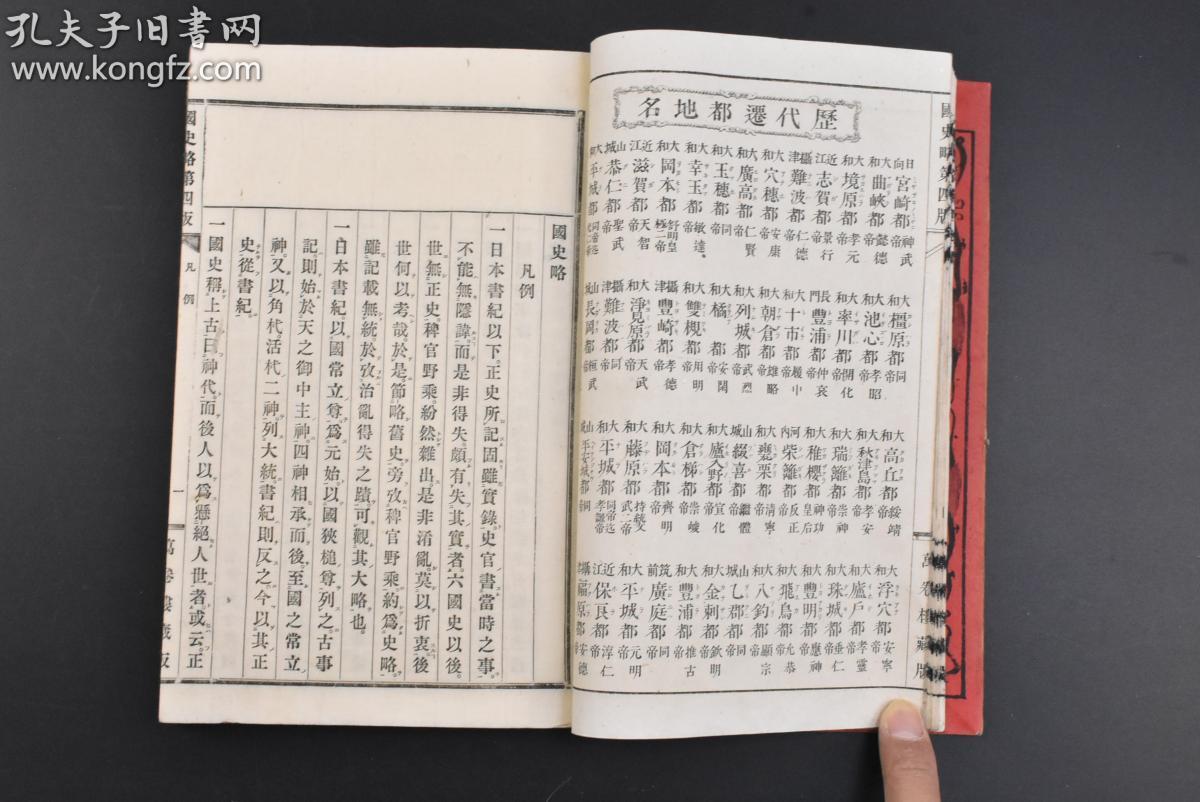 孔夫子旧書网
www.kongfz.com
國史略第四版
萬卷樓藏版
歷代遷都地名
日向宮崎都神武帝
大和橿原都同帝
大和高丘都綏靖帝
大和浮穴都安寧帝
大和曲峽都懿德帝
大和池心都孝昭帝
大和秋津島都孝安帝
大和廬戶都孝靈帝
大和境原都孝元帝
大和率川都開化帝
大和瑞籬都崇神帝
大和珠城都垂仁帝
近江志賀都景行帝
長門豐浦都仲哀帝
大和稚櫻都神功皇后
大和豐明都應神帝
攝津難波都仁德帝
大和十市都履中帝
河內柴籬都反正帝
大和飛鳥都允恭帝
大和穴穗都安康帝
大和朝倉都雄略帝
大和甕栗都清寧帝
大和八釣都顯宗帝
大和廣高都仁賢帝
大和列城都武烈帝
山城綴喜都繼體帝
山城乙郡都同帝
大和玉穗都同帝
大和橘都安閑帝
大和廬入野都宣化帝
大和金刺都欽明帝
大和幸玉都敏達帝
大和雙槻都用明帝
大和倉梯都崇峻帝
大和豐浦都推古帝
大和岡本都舒明皇極二帝
攝津豐崎都孝德帝
大和岡本都齊明帝
筑前廣庭都同帝
近江滋賀都天智帝
大和淨見原都天武帝
大和藤原都持統文武二帝
大和平城都元明帝
山城恭仁都聖武帝
攝津難波都同帝
大和平城都同帝迄孝謙帝
近江保良都淳仁帝
大和平城都
山城長岡都桓武帝
山城平安城都同帝
攝津福原都安德帝
國史略
凡例
一日本書紀以下。正史所記固雖實錄。史官書當時之事。
不能無隱諱。而是非得失。頗有失其實者。六國史以後。
世無正史。稗官野乘。紛然雜出。是非淆亂。莫以折衷。後
世何以考哉。於是節略舊史。旁攷稗官野乘。約爲史略。
雖記載無統。於攷治亂得失之蹟。可觀其大略也。
一日本書紀。以國常立尊爲元始。以國狹槌尊列之。古事
記。則始於天之御中主神。四神相承。而後至國之常立
神。又以角杙活杙二神。列大統。書紀則反之。今以其正
史從書紀。
一國史稱上古曰神代。而後人以爲懸絕人世者。或云。正
國史略第四版
凡例
一
萬卷樓藏版